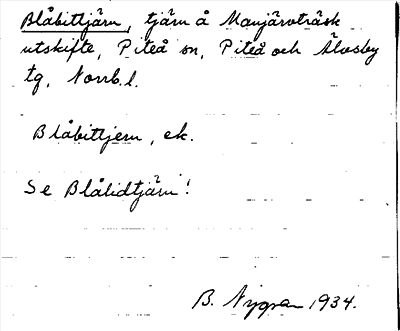 Blåbittjärn, tjärn å Manjärvträsk
utskifte, Piteå sn, Piteå och Älvsby
tg, Norrb. l.
Blåbittjern, ek.
Se Blålidtjärn!
B. Nygren 1934.